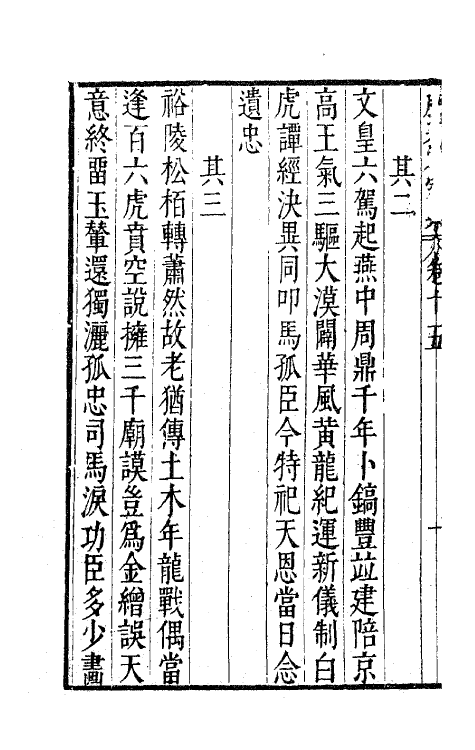 卷十五
十
其二
文皇六駕起燕中周鼎千年卜鎬豐並建陪京
高王氣三驅大漠闢華風黃龍紀運新儀制白
虎譚經決異同叩馬孤臣今特祀天恩當日念
遺忠
其三
裕陵松栢轉蕭然故老猶傳土木年龍戰偶當
逢百六虎賁空說擁三千廟謨豈爲金繒誤天
意終留玉輦還獨灑孤忠司馬淚功臣多少畫